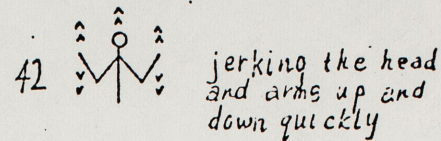 42
jerking the head
and arms up and
down quickly